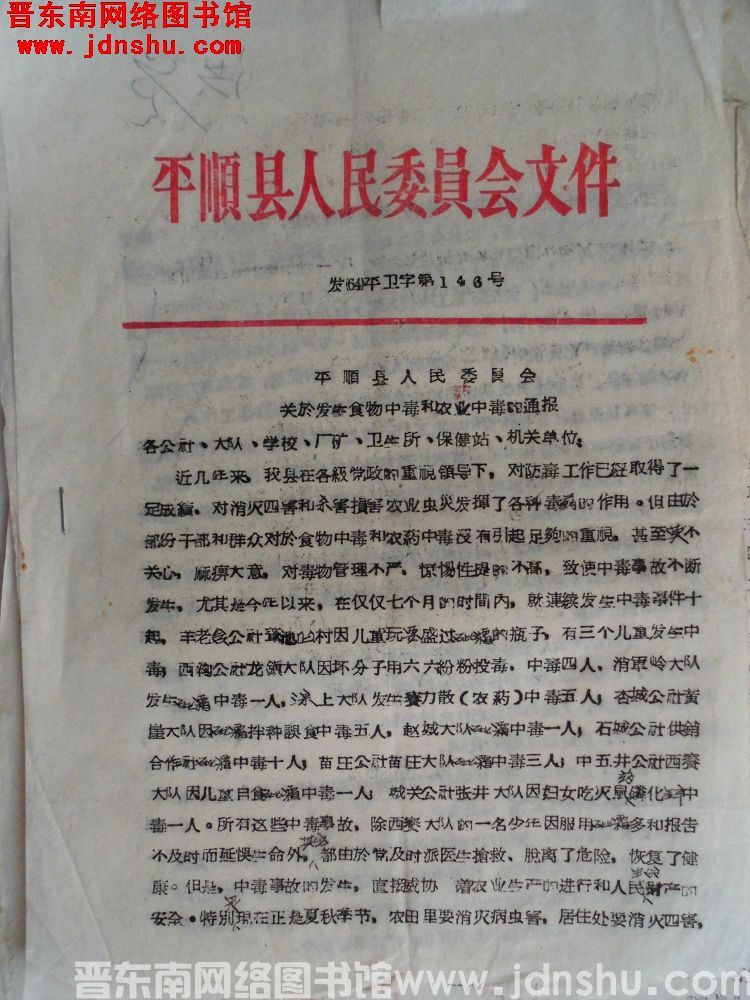 晋东南网络图书馆
www.jdnshu.com
平順县人民委員会文件
发(64)平卫字第146号
平順县人民委員会
关於发生食物中毒和农业中毒的通报
药
各公社、大队、学校、厂矿、卫生所、保健站、机关单位:
近几年来,我县在各級党政的重視領导下,对防毒工作已經取得了一
定成績,对消灭四害和杀害損害农业虫災发揮了各种毒药的作用。但由於
部份干部和群众对於食物中毒和农药中毒沒有引起足夠的重視,甚至笑不
关心,麻痹大意,对毒物管理不严,惊惕性提的不高,致使中毒事故不断
发生,尤其是今年以来,在仅仅七个月的时間內,就連続发生中毒事件十
起,羊老岩公社 村因儿童玩耍盛过 的瓶子,有三个儿童发生中
毒;西沟公社龙鎮大队因坏分子用六六粉粉投毒,中毒四人,消軍岭大队
发生 中毒一人, 上大队发生賽力散(农药)中毒五人;杏城公社黄
崖大队因 拌种誤食中毒五人,赵城大队 中毒一人;石城公社供銷
合作社 中毒十人;苗庄公社苗庄大队 中毒三人;中五井公社西赛
大队因儿童自食 中毒一人;城关公社张井大队因妇女吃灭鼠药磷化 中
毒一人。所有这些中毒事故,除西赛大队的一名少年因服用 多和报告
不及时而延悞生命外,其他都由於党及时派医生搶救、脱离了危险,恢复了健
康。但是,中毒事故的发生,直接威协 着农业生产的进行和人民生命财产的
安全。特別是現在正是夏秋季节,农田里要消灭病虫害,居住处要消火四害,
晋东南网络图书馆www.jdnshu.com